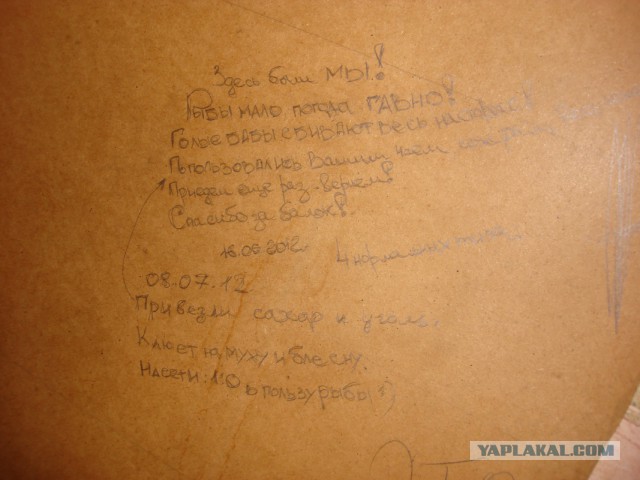 Здесь были МЫ!
Рыбы мало, погода ГАВНО!
Голые бабы сбивают весь настрой!
Попользовались Вашим чаем сахаром
Приедем еще раз - вернем!
Спасибо за балок!
16.06.2012 4 нормальных
08.07.12
Привезли сахар и уголь.
Клюет на муху и блесну.
На сети: 1:0 в пользу рыбы :)
YAPLAKAL.COM